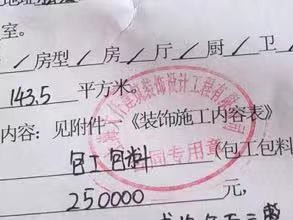 室。
/ 房型 / 房 / 厅 / 厨 / 卫
143.5 平方米。
内容：见附件一《装饰施工内容表》
包工包料 (包工包料
250000 元，
装饰设计工程有限公司
合同专用章